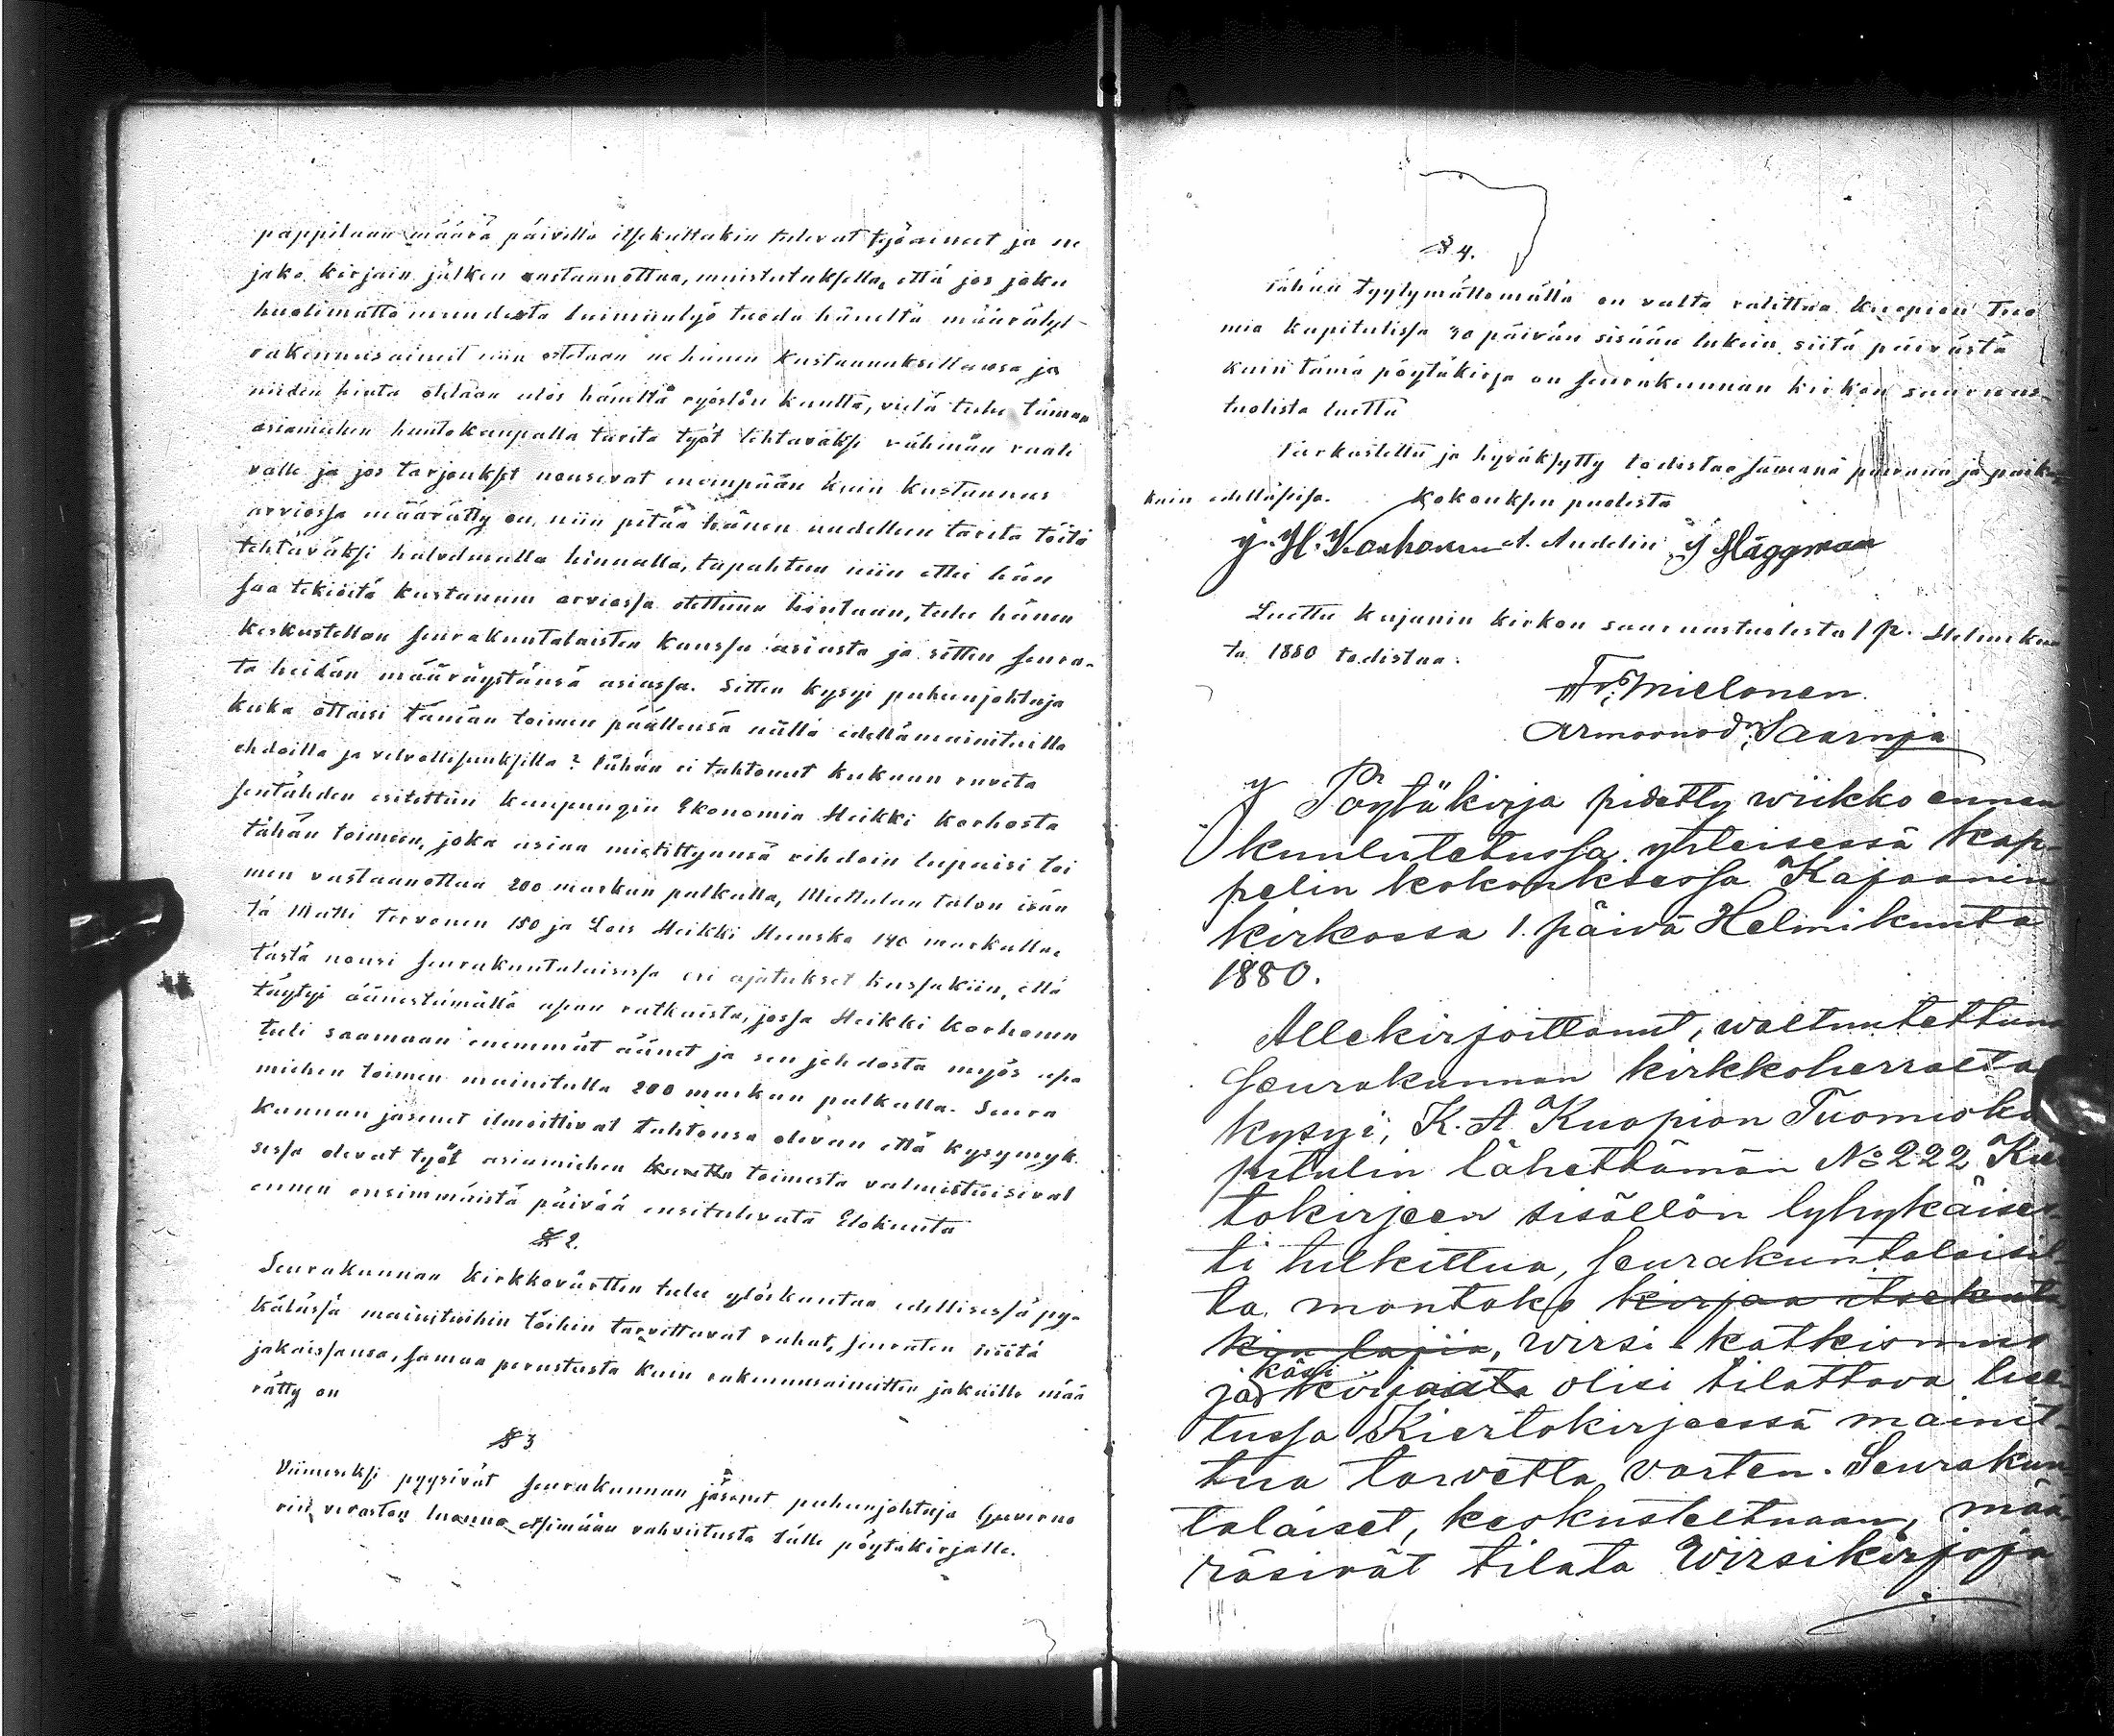 pappilaan määrä päivillä itsekultakin tulevat työaineet ja ne
jako kirjain jälken vastaanottaa, muistutuksella, että jos joku
huolimattomuudesta laiminlyö tuoda häneltä määrätyt
rakennusaineet niin ostetaan ne hänen kustannuksillansa ja
niiden hinta otetaan ulos häneltä ryöstön kautta, vielä tulee tämän
asiamiehen huutokaupalla tarita työt tehtäväksi vähimän vaati
valle ja jos tarjoukset nousevat enempään kuin kustannus
arviossa määrätty on, niin pitää hänen uudelleen tarita töitä
tehtäväksi halvemalla hinnalla, tapahtuu niin ettei hän
saa tekiöitä kustannus arviossa otettuun hintaan, tulee hänen
keskustellan seurakuntalaisten kanssa asiasta ja sitten seura-
ta heidän määräystänsä asiassa. Sitten kysyi puheenjohtaja
kuka ottaisi tämän toimen päällensä näillä edellämainituilla
ehdoilla ja velvollisuuksilla? Tähän ei tahtonut kukaan ruveta
sentähden esitettiin kaupungin Ekonomia Heikki Korhosta
tähän toimeen, joka asiaa mietittyänsä vihdoin lupaisi toi
men vastaanottaa 200 markan palkalla, Miettulan talon isän
tä Matti Tervonen 150 ja Lois Heikki Huusko 140 markalla.
tästä nousi seurakuntalaisissa eri ajatukset kussakiin, että
täytyi äänestämällä asiaa ratkaista, jossa Heikki Korhonen
tuli saamaan enemmät äänet ja sen johdosta myös asia
miehen toimen mainitulla 200 markan palkalla. Seura
kunnan jäsenet ilmoittivat tahtonsa olevan että kysymyk
sessä olevat työt asiamiehen kautta toimesta valmistuisivat
ennen ensimmäistä päivää ensitulevata Elokuuta
§ 2.
Seurakunnan kirkkovärttin tulee ylöskantaa edellisessä py-
kälässä mainituihin töihin tarvittavat rahat, seuraten niitä
jakaissansa, samaa perustusta kuin rakennusaineitten jakaille mää
rätty on
§ 3
Viimeseksi pyysivät seurakunnan jäsenet puheenjohtaja Guverne
rin viraston luonna etsimään vahvistusta tälle pöytäkirjalle.
§ 4.
Tähän tyytymättömällä on valta valittaa Kuopion Tuo
mio kapitulissa 30 päivän sisään lukein siitä päivästä
kuin tämä pöytäkirja on seurakunnan kirkon saarnas-
tuolista luettu
Tarkastettu ja hyväksytty todistaa samana päivänä ja paikas
kuin edelläsisa. Kokouksen puolesta
J. H. Korhonen A. Andelin J Häggman
Luettu Kajanin kirkon saarnastuolista 1 p. Helmikuu
ta 1880 todistaa:
Fr. Mielonen.
Armovuod: Saarnaja
Pöytäkirja pidetty wiikko ennen
kuulutetussa yhteisessä kap-
pelin kokouksessa Kajaanin
kirkossa 1. päivä Helmikuuta
1880.
Allekirjoittanut, waltuutettuna
seurakunnan kirkkoherralta
kysyi, K. A Kuopion Tuomioka
pitulin lähettämän No 222 Kier
tokirjeen sisällön lyhykäises-
ti tulkittua, seurakuntalaisil-
ta montako kirjaa itsekuta
kin lajia, wirsi katkismus
ja käsi kirjaata olisi tilattava lue-
tussa Kiertokirjeessä mainit-
tua tarvetta varten. Seurakun
talaiset, keskusteltuaan, mää
räsivät tilata Wirsikirjoja